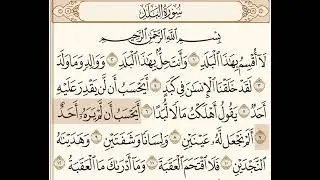 سُورَةُ الْبَلَدِ
بِسْمِ اللَّهِ الرَّحْمَٰنِ الرَّحِيمِ
لَا أُقْسِمُ بِهَٰذَا الْبَلَدِ ١ وَأَنتَ حِلٌّ بِهَٰذَا الْبَلَدِ ٢ وَوَالِدٍ وَمَا وَلَدَ
٣ لَقَدْ خَلَقْنَا الْإِنسَٰنَ فِي كَبَدٍ ٤ أَيَحْسَبُ أَن لَّن يَقْدِرَ عَلَيْهِ
أَحَدٌ ٥ يَقُولُ أَهْلَكْتُ مَالًا لُّبَدًا ٦ أَيَحْسَبُ أَن لَّمْ يَرَهُ أَحَدٌ
٧ أَلَمْ نَجْعَل لَّهُ عَيْنَيْنِ ٨ وَلِسَانًا وَشَفَتَيْنِ ٩ وَهَدَيْنَٰهُ
النَّجْدَيْنِ ١٠ فَلَا اقْتَحَمَ الْعَقَبَةَ ١١ وَمَا أَدْرَىٰكَ مَا الْعَقَبَةُ ١٢